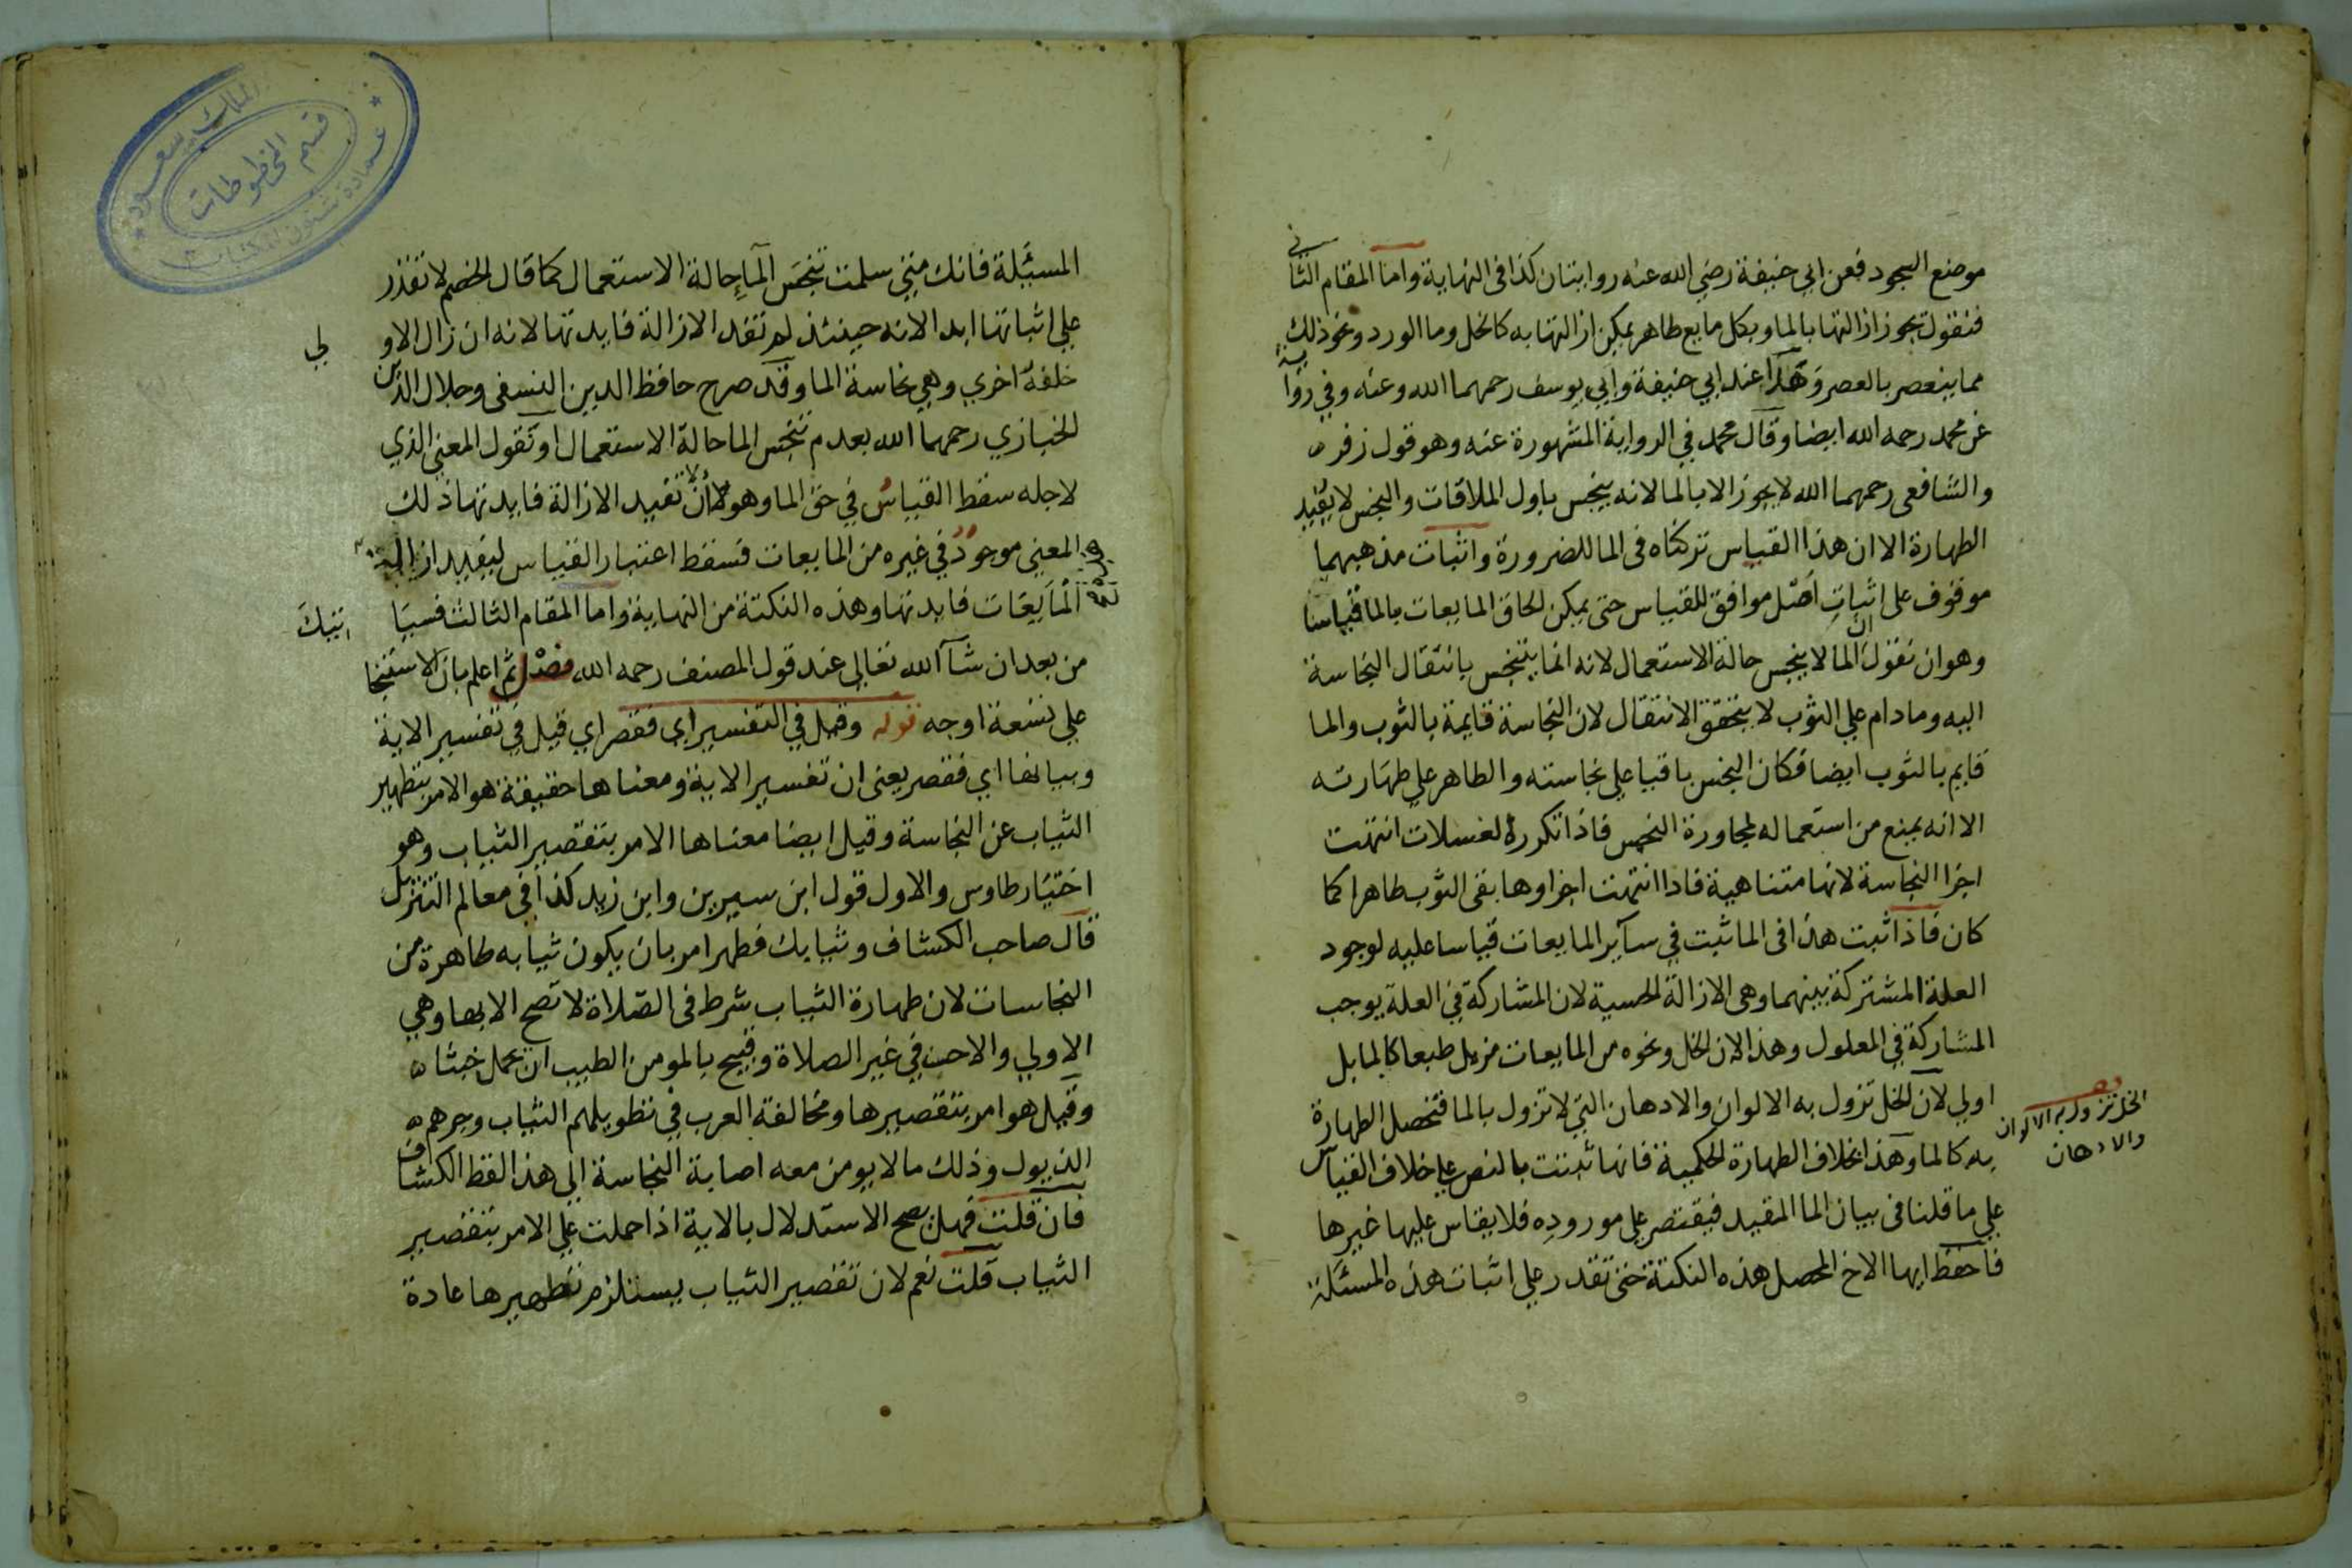 موضع السجود فعن ابي حنيفة رضي الله عنه روايتان كذا في النهاية واما المقام الثاني
فنقول تجوز ازالتها بالما وبكل مايع طاهر يمكن ازالتها به كالخل وما الورد ونحو ذلك
مما ينعصر بالعصر وهذا عند ابي حنيفة وابي يوسف رحمهما الله وعنه وفي رواية
عن محمد رحمه الله ايضا وقال محمد في الرواية المشهورة عنه وهو قول زفر
والشافعي رحمهما الله لا يجوز الا بالما لانه ينجس باول الملاقات والنجس لا يفيد
الطهارة الا ان هذا القياس تركناه في الما للضرورة واثبات مذهبهما
موقوف على اثبات اصل موافق للقياس حتى يمكن الحاق المايعات بالما قياسا
وهو ان نقول ان الما لا ينجس حالة الاستعمال لانه انما يتنجس بانتقال النجاسة
اليه وما دام علي الثوب لا يتحقق الانتقال لان النجاسة قايمة بالثوب والما
قايم بالثوب ايضا فكان النجس باقيا علي نجاسته والطاهر علي طهارته
الا انه يمنع من استعماله لمجاورة النجس فاذا تكررة الغسلات انتهت
اجزا النجاسة لانها متناهية فاذا انتهت اجزاوها بقى الثوب طاهرا كما
كان فاذا ثبت هذا فى الما ثبت في سآير المايعات قياسا عليه لوجود
العلة المشتركة بينهما وهى الازالة الحسية لان المشاركة في العلة يوجب
المشاركة في المعلول وهذا لان الخل ونحوه من المايعات مزيل طبعا كالما بل
اولي لان الخل تزول به الالوان والادهان التي لا تزول بالما فتحصل الطهارة
به كالما وهذا بخلاف الطهارة الحكمية فانها ثبتت بالنص علي خلاف القياس
علي ما قلنا فى بيان الما المقيد فيقتصر علي موروده فلا يقاس عليها غيرها
فاحفظ ايها الاخ المحصل هذه النكتة حتى تقدر علي اثبات هذه المسئلة
الخل تزول به الالوان
والادهان
المسئلة فانك متى سلمت تنجس المآ حالة الاستعمال كما قال الخصم لا تقدر
علي اثباتها ابدا لانه حينئذ لم تفد الازالة فايدتها لانه ان زال الاولي
خلفه اخري وهي نجاسة الما وقد صرح حافظ الدين النسفى وجلال الدين
الخبازي رحمهما الله بعدم تنجس الما حالة الاستعمال او نقول المعني الذي
لاجله سقط القياس في حق الما وهو لان لا تفيد الازالة فايدتها ذلك
المعنى موجود في غيره من المايعات فسقط اعتبار القياس ليفيد ازالة
المايعات فايدتها وهذه النكتة من النهاية واما المقام الثالث فسياتيك
من بعد ان شآ الله تعالى عند قول المصنف رحمه الله فصل ثم اعلم بان الاستنجا
علي تسعة اوجه قوله وقيل في التفسير اي فقصر اي قيل في تفسير الاية
وبيانها اي فقصر يعنى ان تفسير الاية ومعناها حقيقة هو الامر بتطهير
الثياب عن النجاسة وقيل ايضا معناها الامر بتقصير الثياب وهو
اختيار طاوس والاول قول ابن سيرين وابن زيد كذا في معالم التنزيل
قال صاحب الكشاف وثيابك فطهر امر بان يكون ثيابه طاهرة من
النجاسات لان طهارة الثياب شرط فى الصلاة لا تصح الا بها وهي
الاولي والاحب في غير الصلاة وقبيح بالمومن الطيب ان يحمل خبثا
وقيل هو امر بتقصيرها ومخالفة العرب في تطويلهم الثياب وجرهم
الذيول وذلك ما لا يومن معه اصابة النجاسة الي هذا لفظ الكشاف
فان قلت فهل يصح الاستدلال بالاية اذا حملت علي الامر بتقصير
الثياب قلت نعم لان تقصير الثياب يستلزم تطهيرها عادة
قسم المخطوطات
عمادة شئون المكتبات